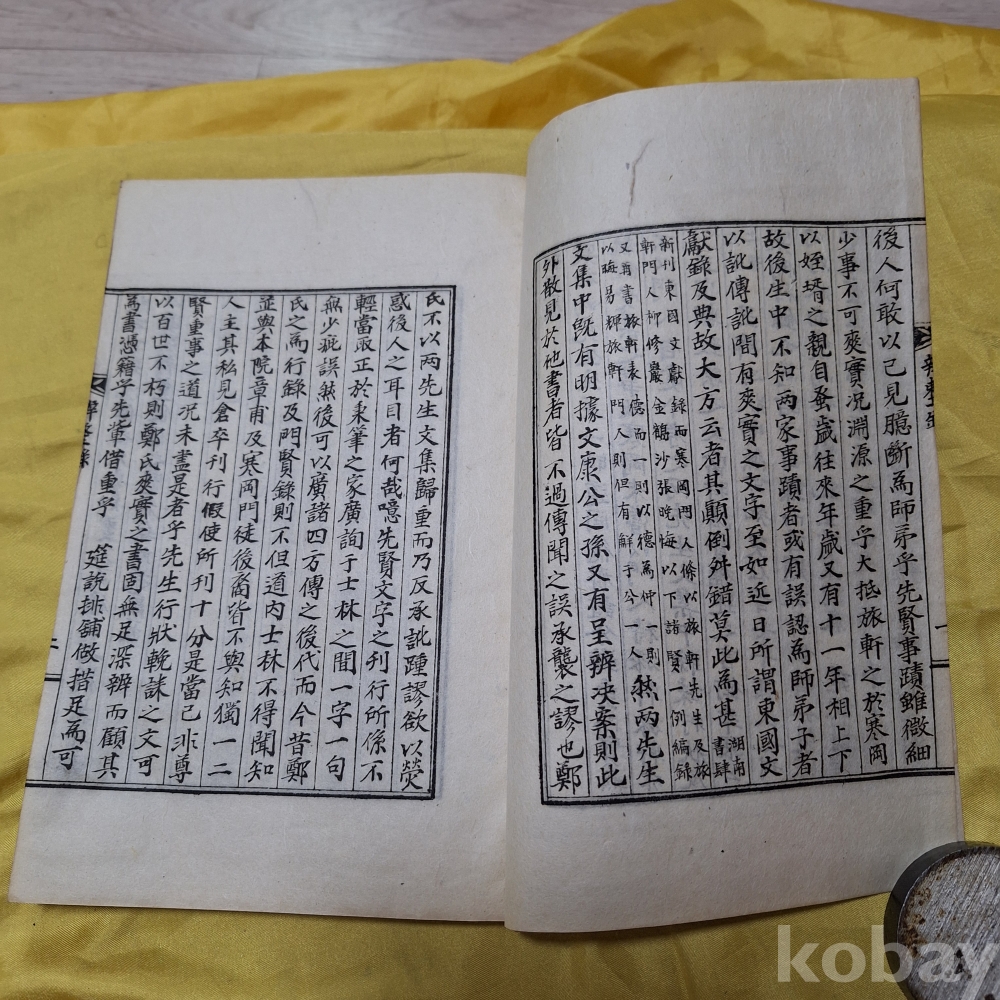 後人何敢以己見臆斷為師弟乎先賢事蹟雖微細
少事不可爽實況淵源之重乎大抵旅軒之於寒岡
以姪壻之親自蚤歲往來年歲又有十一年相上下
故後生中不知两家事蹟者或有誤認為師弟子者
以訛傳訛閒有爽實之文字至如近日所謂東國文
獻錄及典故大方云者其顛倒舛錯莫此為甚湖南書肆
新刊東國文獻錄而寒岡門人條以旅軒先生及旅
軒門人柳修巖金鶴沙張晩悔以下諸賢一例編錄
又肯書旅軒表德而一則以德為仲一則
以晦易輝旅軒門人則但有鮮于公一人然两先生
文集中旣有明據文康公之孫又有呈辨决案則此
外散見於他書者皆不過傳聞之誤承襲之謬也鄭
辨
氏不以两先生文集歸重而乃反承訛踵謬欲以熒
惑後人之耳目者何哉噫先賢文字之刊行所係不
輕當取正於秉筆之家廣詢于士林之間一字一句
無少疵誤然後可以廣諸四方傳之後代而今昔鄭
氏之為行錄及門賢錄則不但道內士林不得聞知
並與本院章甫及寒岡門徒後裔皆不與知獨一二
人主其私見倉卒刊行假使所刊十分是當已非尊
賢重事之道况未盡是者乎先生行狀輓誄之文可
以百世不朽則鄭氏爽實之書固無足深辨而顧其
為書憑籍乎先輩借重乎筵說排鋪做措足為可
辨
二
kobay